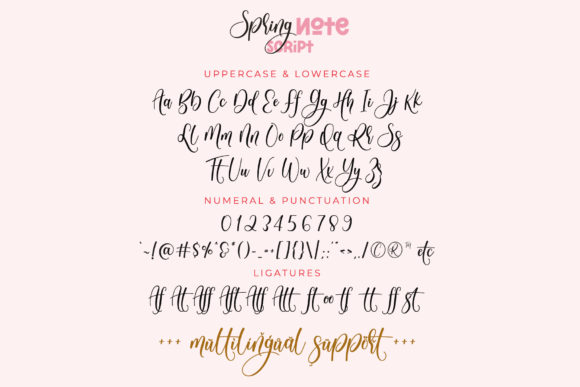 Spring Note
Script
UPPERCASE & LOWERCASE
Aa Bb Cc Dd Ee Ff Gg Hh Ii Jj Kk
Ll Mm Nn Oo Pp Qq Rr Ss
Tt Uu Vv Ww Xx Yy Zz
NUMERAL & PUNCTUATION
0 1 2 3 4 5 6 7 8 9
`~!@#$%^&*()-_=+[]{}\|;:'"<>,./©®™ etc
LIGATURES
Af At Aff Aft Aff Att ft oo tf tt ff st
+++ multilingual support +++